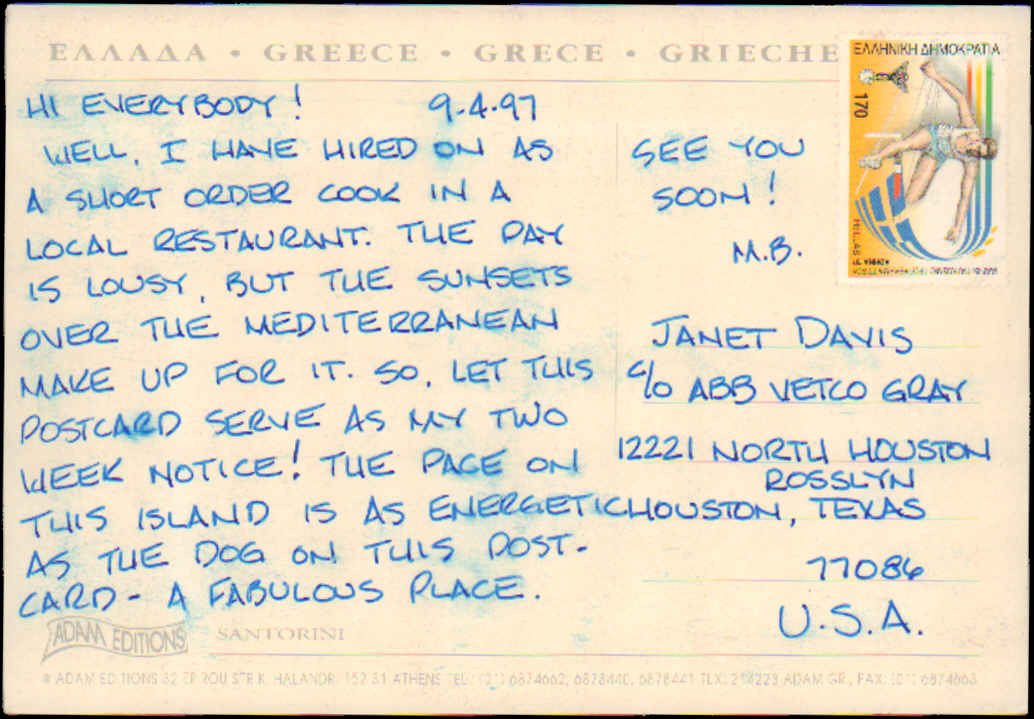 ΕΛΛΑΔΑ • GREECE • GRECE • GRIECHE
ΕΛΛΗΝΙΚΗ ΔΗΜΟΚΡΑΤΙΑ
170
HELLAS
HI EVERYBODY! 9-4-97
WELL, I HAVE HIRED ON AS
A SHORT ORDER COOK IN A
LOCAL RESTAURANT. THE PAY
IS LOUSY, BUT THE SUNSETS
OVER THE MEDITERRANEAN
MAKE UP FOR IT. SO, LET THIS
POSTCARD SERVE AS MY TWO
WEEK NOTICE! THE PACE ON
THIS ISLAND IS AS ENERGETIC
AS THE DOG ON THIS POST-
CARD - A FABULOUS PLACE.
SEE YOU
SOON!
M.B.
JANET DAVIS
c/o ABB VETCO GRAY
12221 NORTH HOUSTON
ROSSLYN
HOUSTON, TEXAS
77086
U.S.A.
ADAM EDITIONS SANTORINI
ADAM EDITIONS 32 STR. K. HALANDRI 152 31 ATHENS TEL. (01) 6874662, 6878440, 6878441 ADAM GR., FAX: (01) 6874663